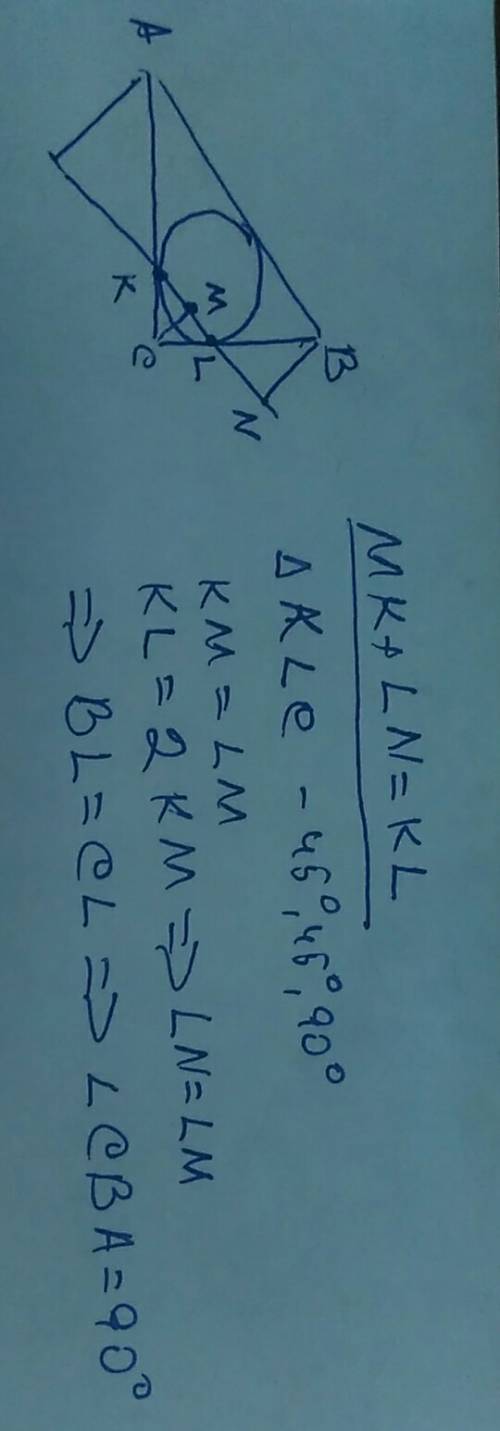 A
B
K
M
C
L
N
MK+LN=KL
Δ KLC - 45°, 45°, 90°
KM=LM
KL=2KM ⇒ LN=LM
⇒ BL=CL ⇒ ∠CBA=90°